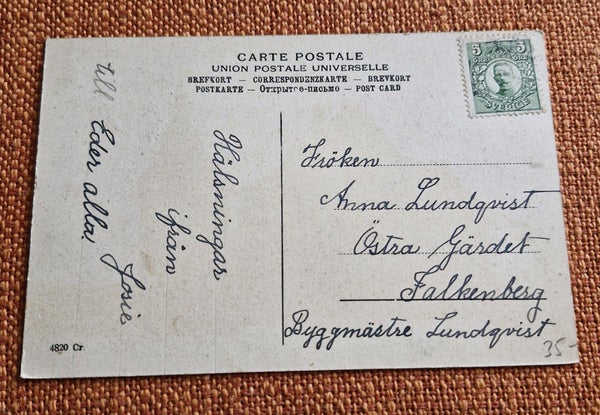 CARTE POSTALE
UNION POSTALE UNIVERSELLE
BREFKORT — CORRESPONDENZKARTE — BREVKORT
POSTKARTE — Открытое-письмо — POST CARD
5 5
ÖRE ÖRE
SVERIGE
Hälsningar
ifrån
Josie
till Eder alla.
Fröken
Anna Lundqvist
Östra Gärdet
Falkenberg
Byggmästre Lundqvist
35-
4820 Cr.